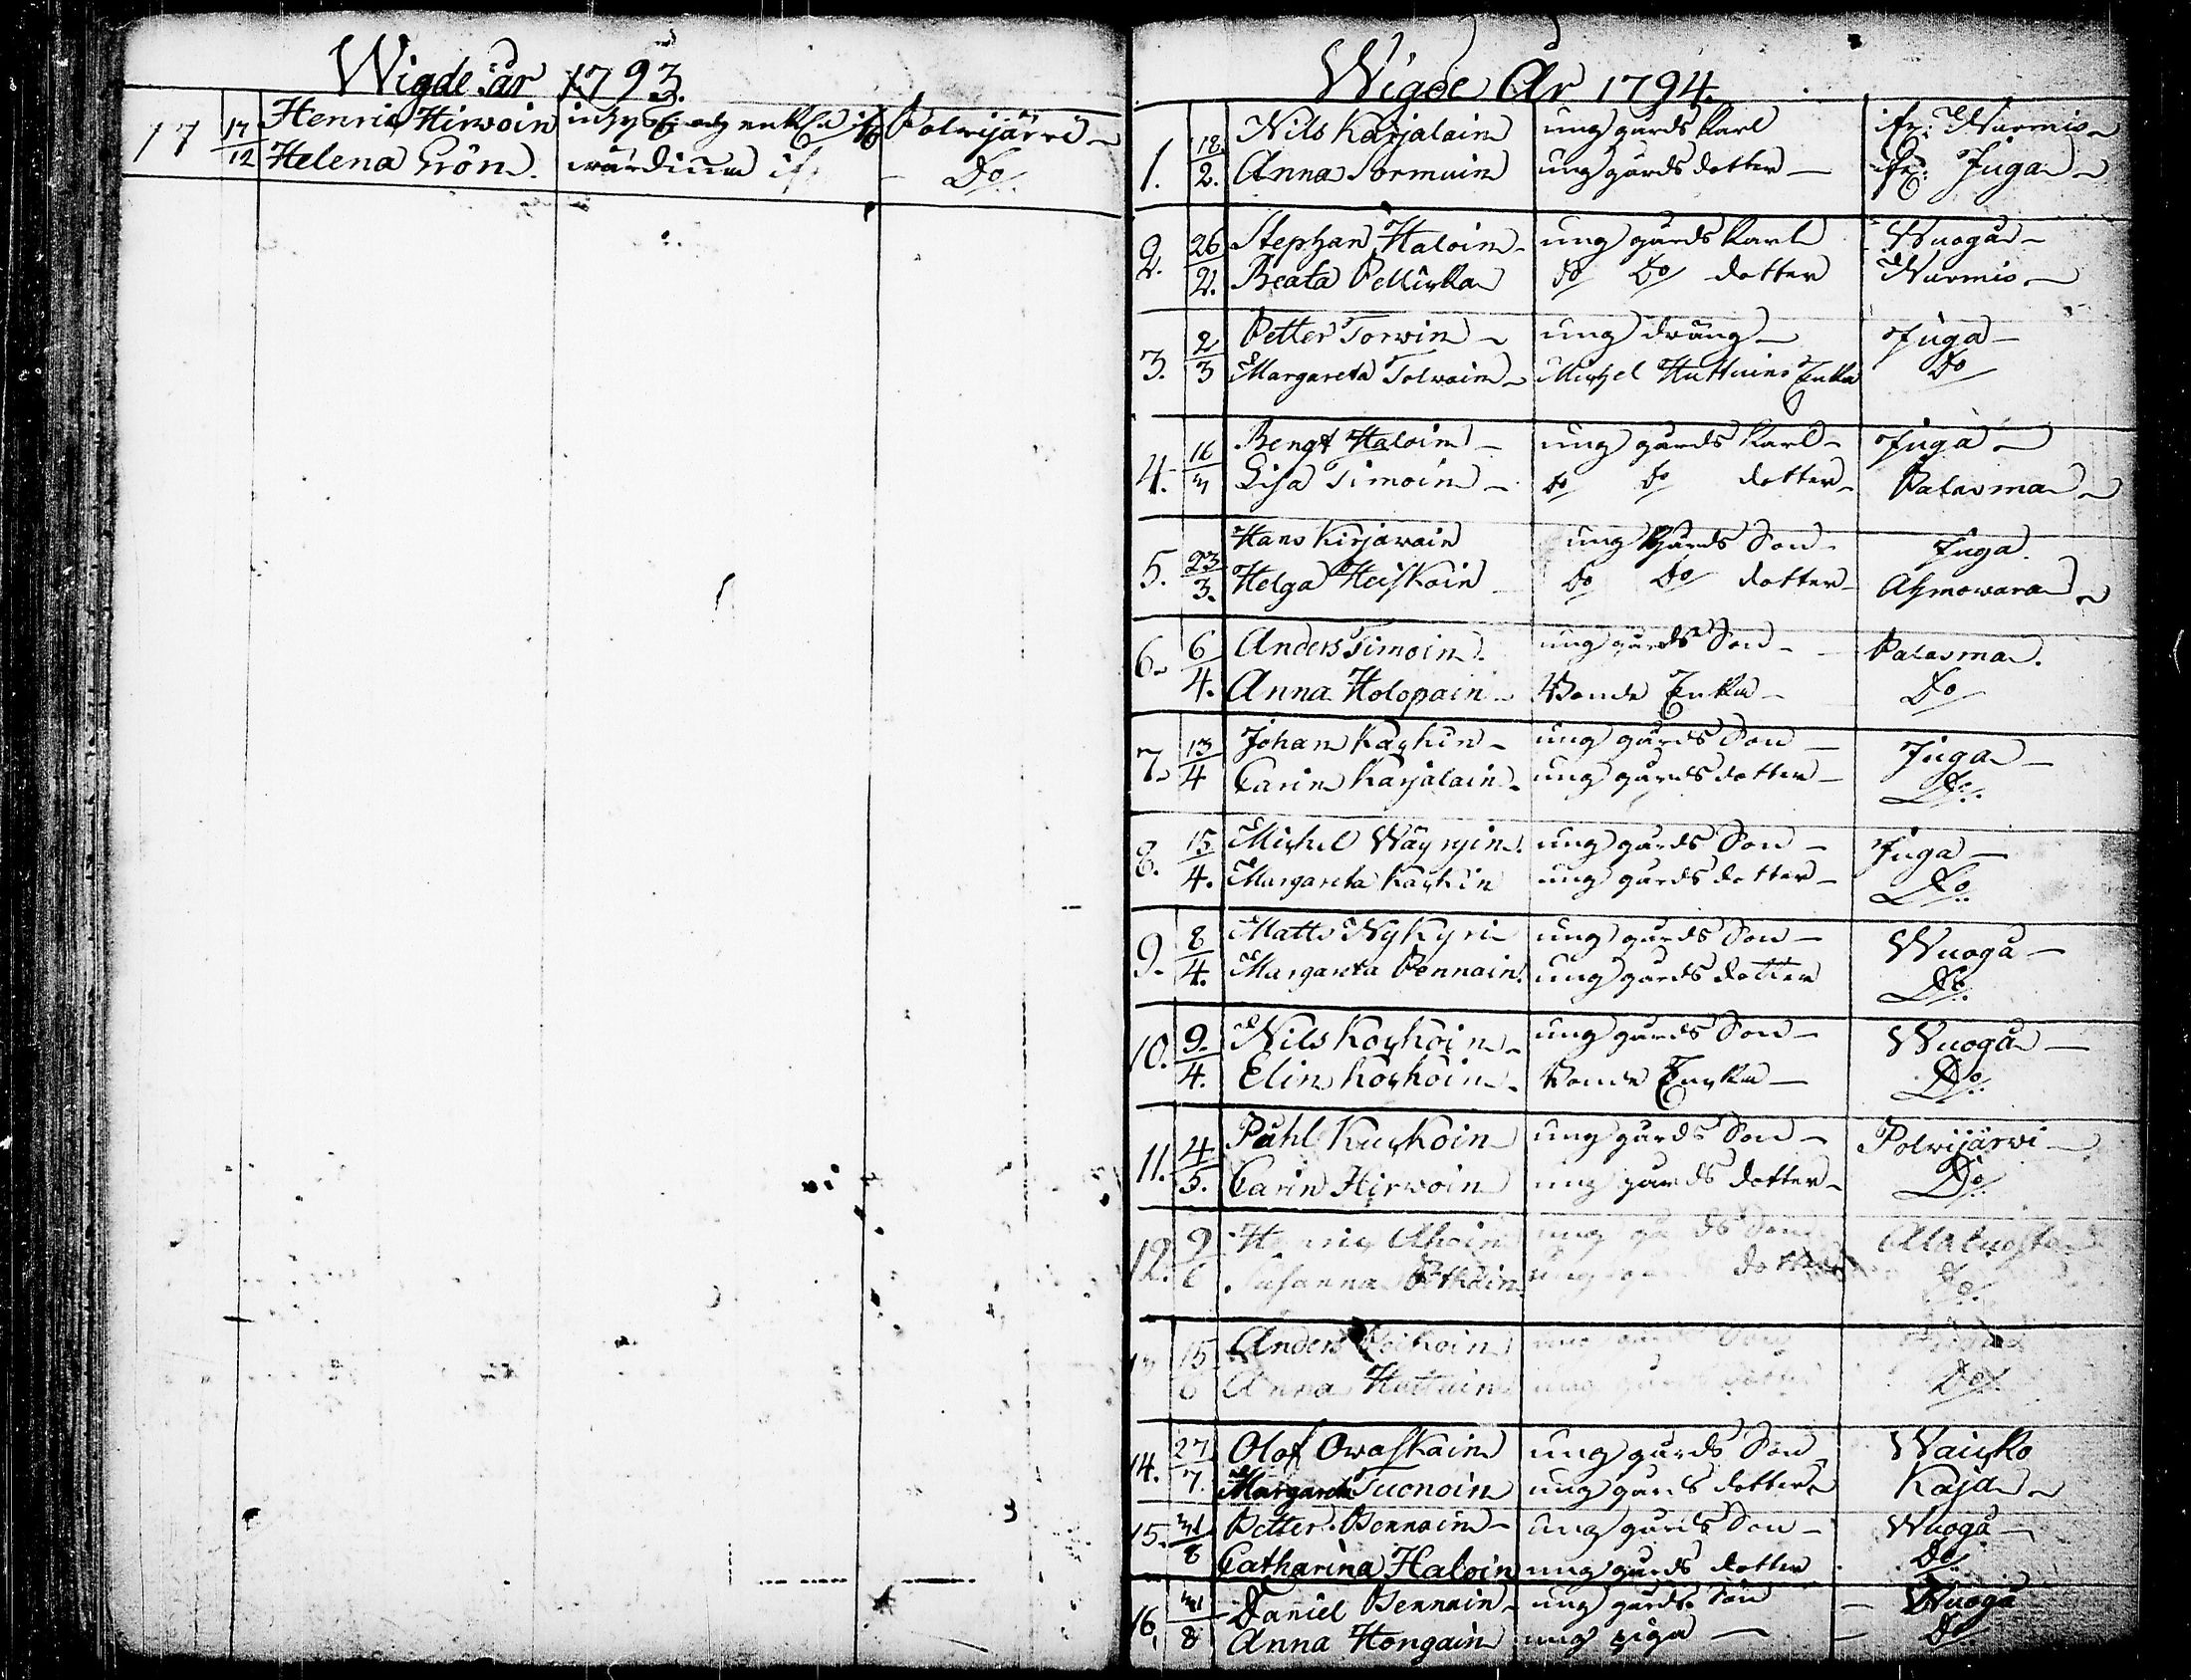 Wigde år 1793.
17 17/12 Henric Hirwoin Polwijärvi
Helena Grön. Do
Wigde År 1794.
1. 18/2. Nils Karjalain ung gårds Karl ifr: Nurmis
Anna Sormuin ung gårds dotter ifr: Juga
2. 26/2. Stephan Haloin ung gårds Karl Wuogå
Beata Pellicka Do Do dotter Nurmis
3. 2/3 Petter Torwin ung dräng Juga
Margareta Tolwain Michel Huttuins Enka Do
4. 16/3 Bengt Haloin ung gårds Karl Juga
Lisa Timoin Do Do dotter Palasma
5. 23/3. Hans Kirjawain ung Gårds Son Juga
Helga Heiskain Do Do dotter Ahmowara
6. 6/4. Anders Timoin ung gårds Son Palasma.
Anna Holopain Bonde Enka Do
7. 13/4 Johan Kärkin ung gårds Son Juga
Carin Karjalain ung gårds dotter Do
8. 15/4. Michel Wäyryin ung gårds Son Juga
Margareta Kärkin ung gårds dotter Do
9. 8/4. Matts Nykyri ung gårds Son Wuogå
Margareta Pennain ung gårds dotter Do.
10. 9/4. Nils Korhoin ung gårds Son Wuogå
Elin Korhoin Bonde Encka Do.
11. 4/5. Påhl Kuckoin ung gårds Son Polwijärwi
Carin Hirwoin ung gårds dotter Do.
12. 9/6 Ahoin ung gårds Son Alaluosta
Susanna ung dotter Do.
15/6 Anders ung
Anna ung dotter Do.
14. 27/7. Olof Owaskain ung gårds Son Waicko
Margareta Tuonoin ung gårds dotter Kaja
15. 31/8 Petter Pennain ung gårds Son Wuogå
Catharina Haloin ung gårds dotter Do.
16. 31/8 Daniel Pennain ung gårds Son Wuogå
Anna Hongain ung piga Do